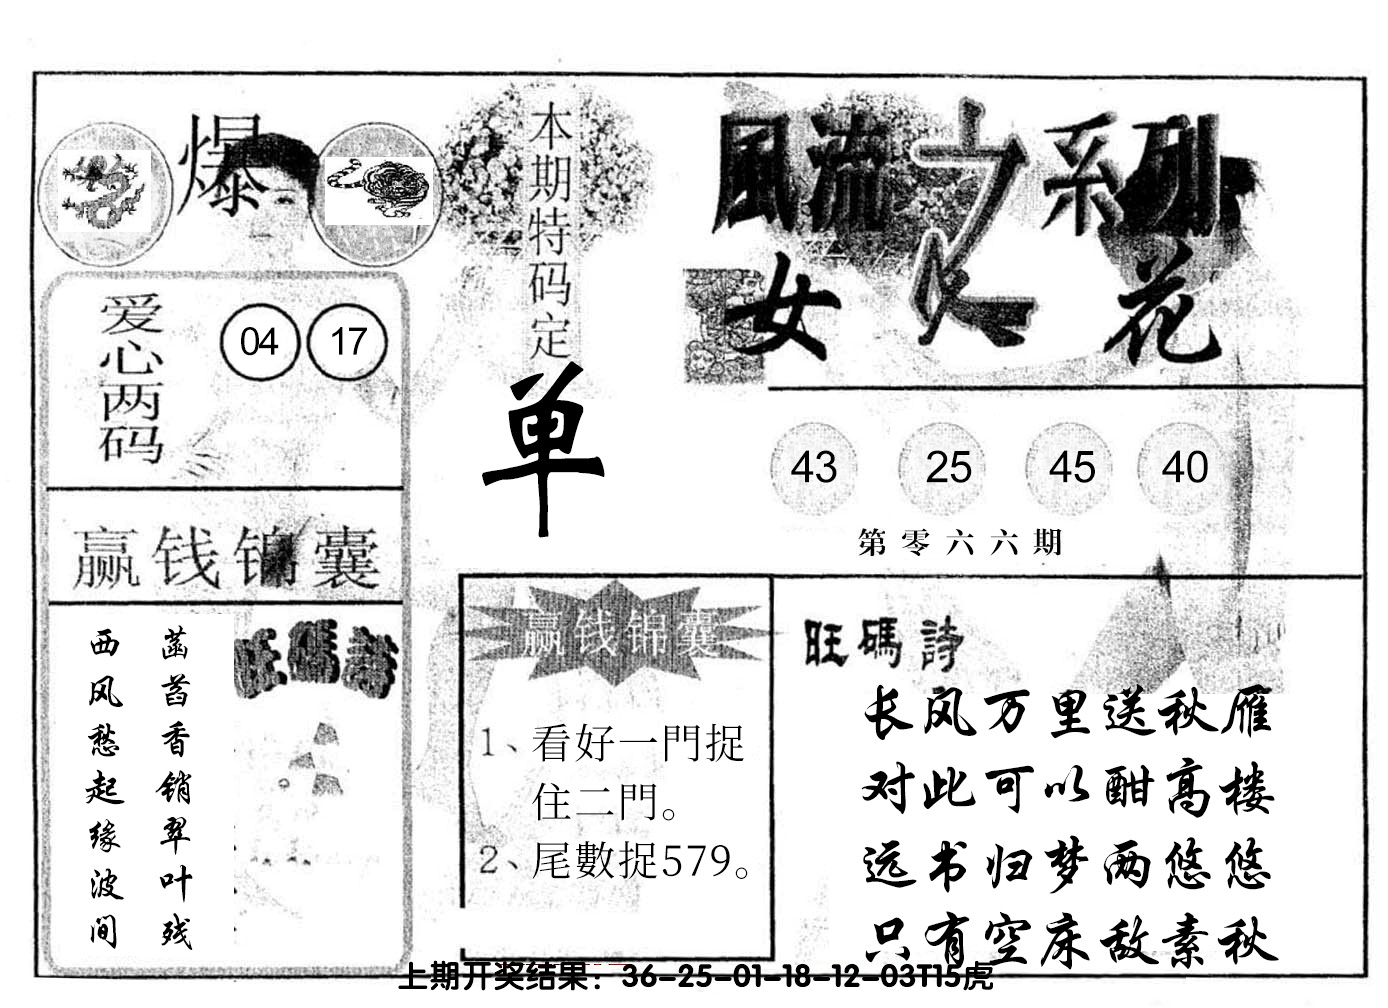 爆
本期特码定
单
風流之系列
女人花
爱心两码
04 17
43 25 45 40
第零六六期
赢钱锦囊
菡萏香销翠叶残
西风愁起缘波间
旺碼詩
赢钱锦囊
1、看好一門捉
住二門。
2、尾數捉579。
旺碼詩
长风万里送秋雁
对此可以酣高楼
远书归梦两悠悠
只有空床敌素秋
上期开奖结果：36-25-01-18-12-03T15虎